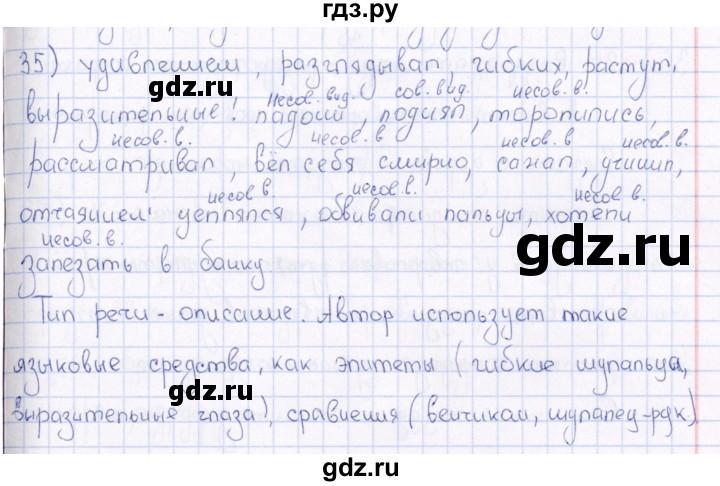 гдз.ру
35) удивлением, разглядывал, гибких, растут,
gdz.ru
несов. вид. сов. вид. несов. в.
выразительные! ладони, поднял, торопились,
несов. в. несов. в несов. в. несов. в.
рассматривал, вёл себя смирно, сажал, учинил,
несов в. несов. в. несов. в.
отчаянием цеплялся, обвивали пальцы, хотели
gdz.ru
несов. в.
залезать в банку
Тип речи - описание. Автор использует такие
языковые средства, как эпитеты (гибкие щупальца,
gdz.ru
выразительные глаза), сравнения (венчиком, щупалец-рук)
gdz.ru